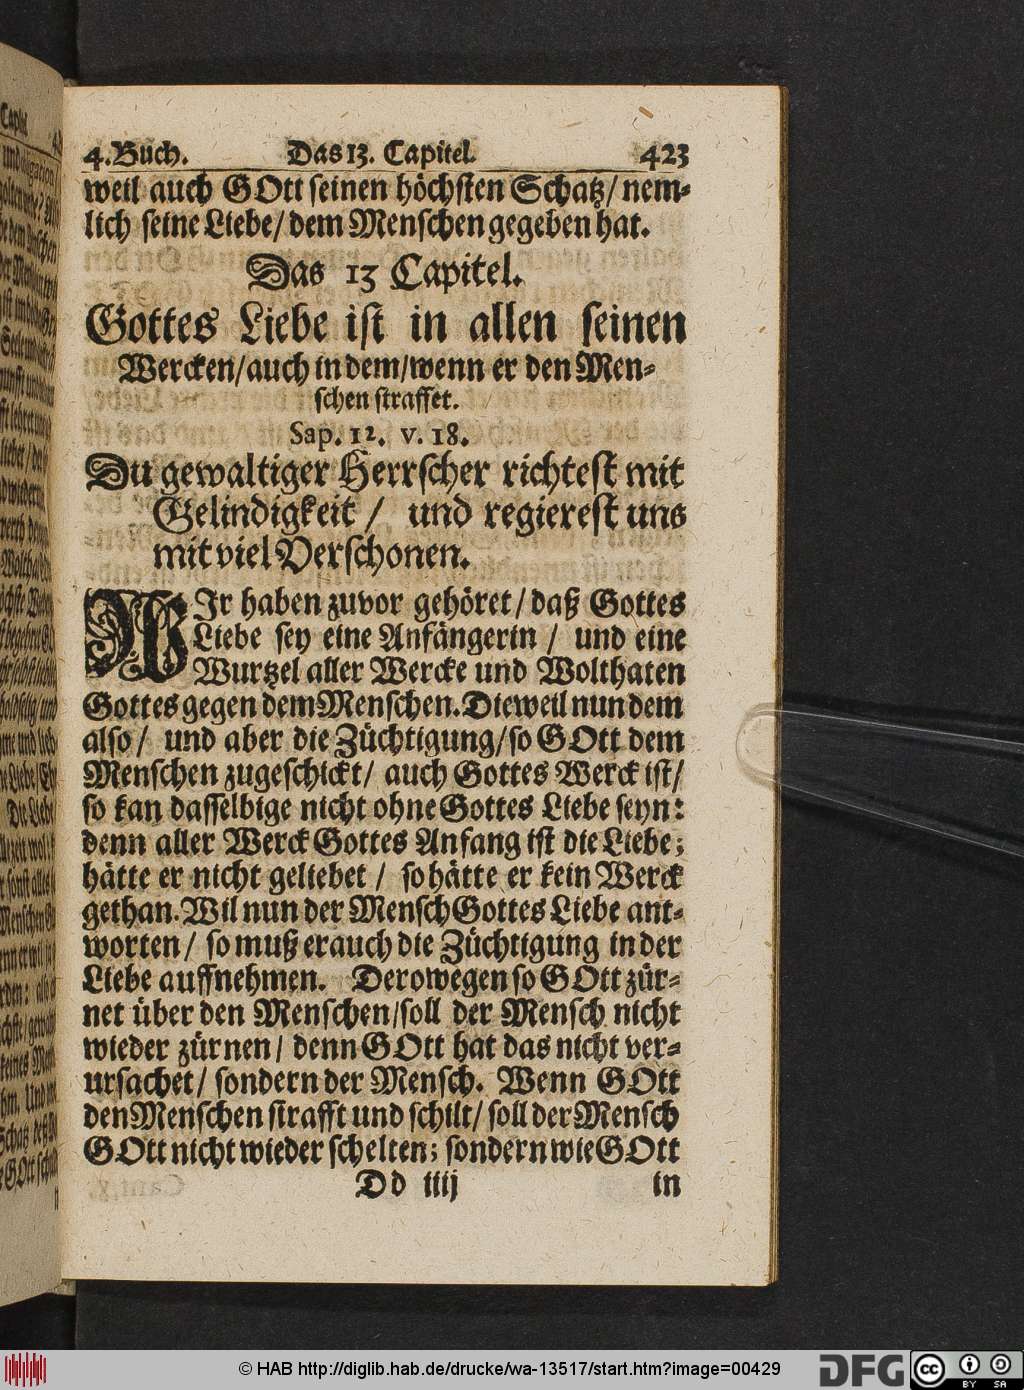 4. Buch. Das 13. Capitel. 423
weil auch GOtt seinen höchsten Schatz/ nem-
lich seine Liebe/ dem Menschen gegeben hat.
Das 13 Capitel.
Gottes Liebe ist in allen seinen
Wercken/ auch in dem/ wenn er den Men-
schen straffet.
Sap. 12. v. 18.
Du gewaltiger Herrscher richtest mit
Gelindigkeit / und regierest uns
mit viel Verschonen.
WJr haben zuvor gehöret/ daß Gottes
Liebe sey eine Anfängerin / und eine
Wurtzel aller Wercke und Wolthaten
Gottes gegen dem Menschen. Dieweil nun dem
also/ und aber die Züchtigung/ so GOtt dem
Menschen zugeschickt/ auch Gottes Werck ist/
so kan dasselbige nicht ohne Gottes Liebe seyn:
denn aller Werck Gottes Anfang ist die Liebe;
hätte er nicht geliebet / so hätte er kein Werck
gethan. Wil nun der Mensch Gottes Liebe ant-
worten/ so muß er auch die Züchtigung in der
Liebe auffnehmen. Derowegen so GOtt zür-
net über den Menschen/ soll der Mensch nicht
wieder zürnen/ denn GOtt hat das nicht ver-
ursachet/ sondern der Mensch. Wenn GOtt
den Menschen strafft und schilt/ soll der Mensch
GOtt nicht wieder schelten; sondern wie GOtt
Dd iiij in
© HAB http://diglib.hab.de/drucke/wa-13517/start.htm?image=00429
DFG cc BY SA